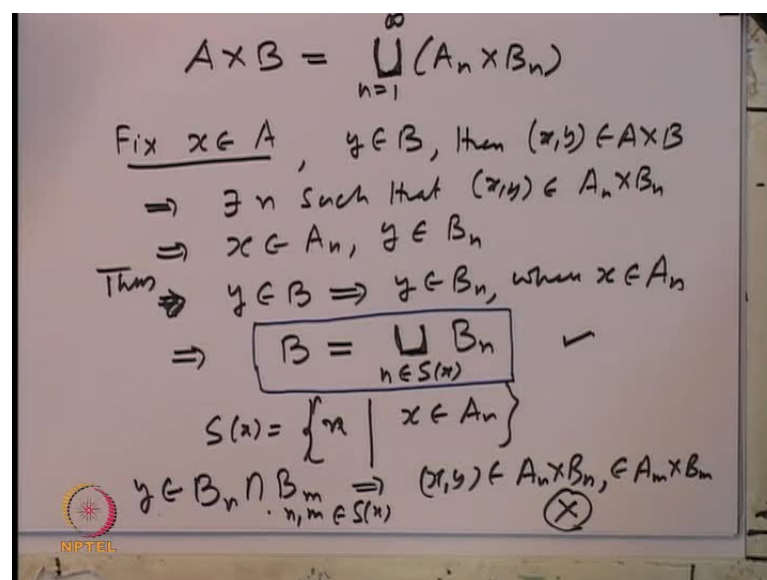 ∞
A × B = ⊔ (Aₙ × Bₙ)
n=1
Fix x ∈ A , y ∈ B, then (x,y) ∈ A×B
⇒ ∃ n such that (x,y) ∈ Aₙ × Bₙ
⇒ x ∈ Aₙ, y ∈ Bₙ
Thus ⇒ y ∈ B ⇒ y ∈ Bₙ, when x ∈ Aₙ
⇒ B = ⊔ Bₙ ✓
n ∈ S(x)
S(x) = { n | x ∈ Aₙ }
y ∈ Bₙ ∩ Bₘ ⇒ (x,y) ∈ Aₙ×Bₙ, ∈ Aₘ×Bₘ
n,m ∈ S(x) ⓧ
NPTEL